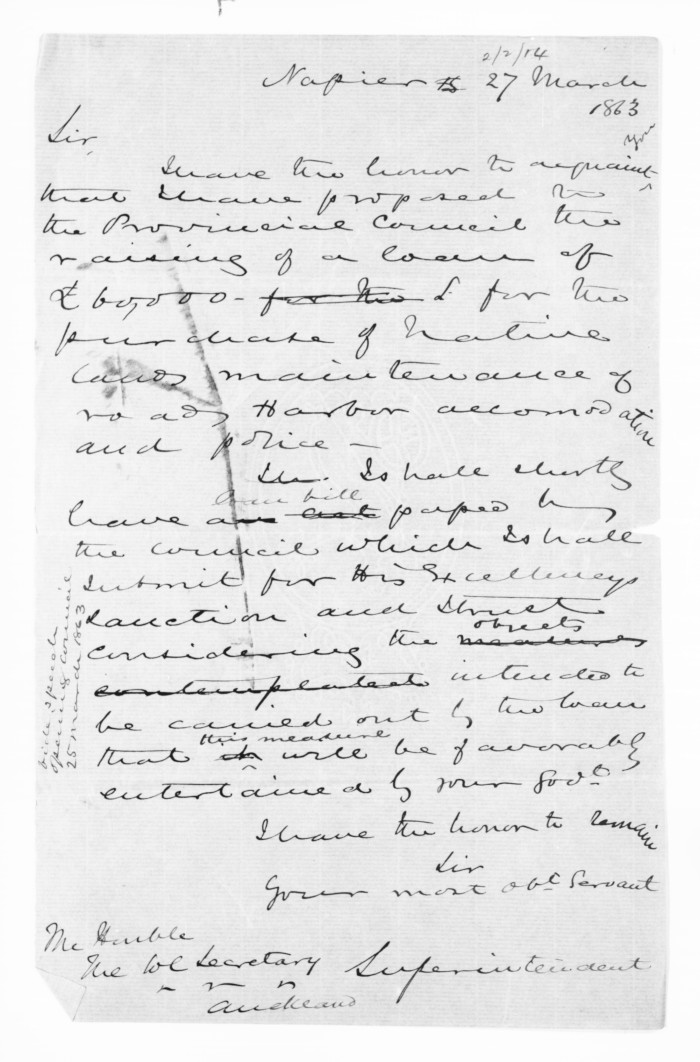 2/2/14
Napier 27 March
1863
Sir,
I have the honor to acquaint you
that I have proposed to
the Provincial Council the
raising of a loan of
£60,000 - for the L for the
purchase of Native
lands maintenance of
roads Harbor accomodation
and police -
I shall shortly
loan bill
have an act passed by
the Council which I shall
submit for His Excellencys
sanction and I trust
objects
considering the measures
contemplated intended to
be carried out by the loan
this measure
that it will be favorably
entertained by your Govt.
I have the honor to remain
Sir
Your most obt Servant
Superintendent
The Honble
The Col Secretary
Auckland
vide speech
opening council
25 march 1863